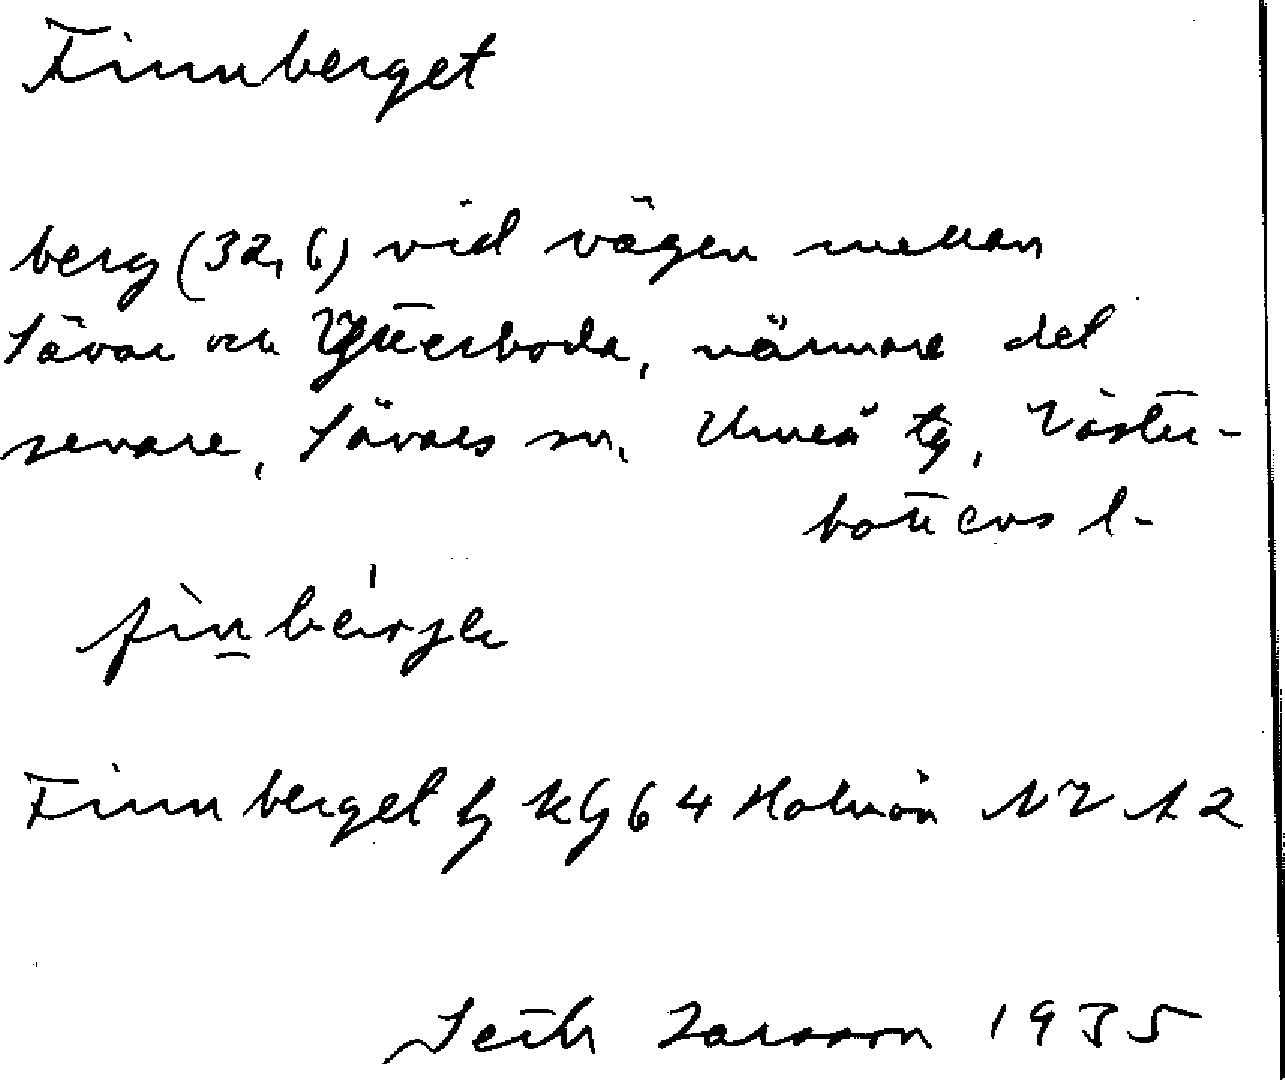 Finnberget
berg (32,6) vid vägen mellan
Sävar och Ytterboda, närmare det
senare, Sävars sn, Umeå tg, Väster-
bottens l-
Finnberget kg 64 Holmön NV A2
Seth Larsson 1935